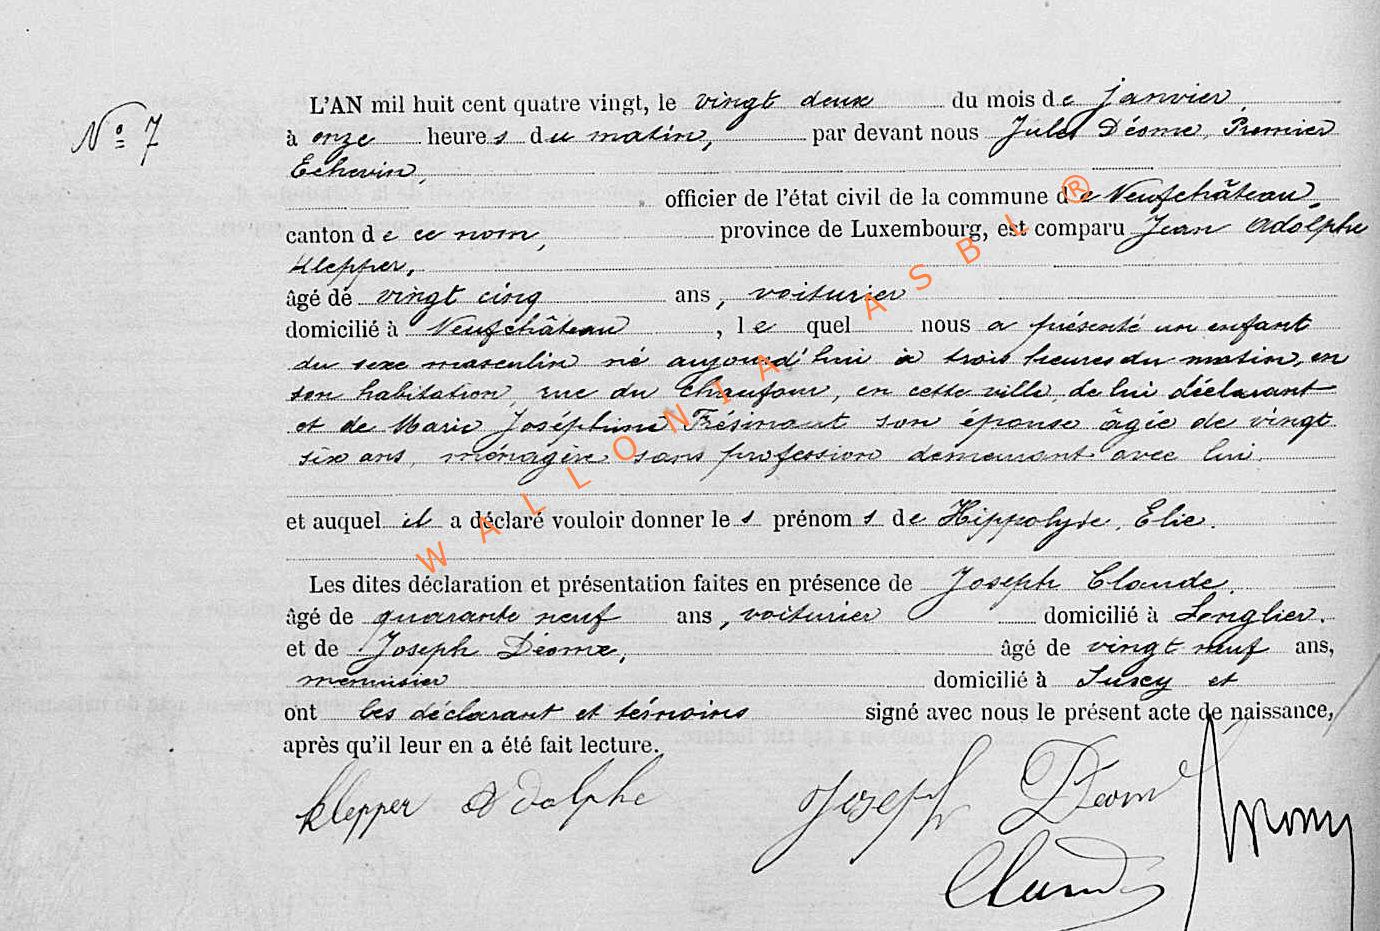 N° 7
L'AN mil huit cent quatre vingt, le vingt deux du mois de janvier
à onze heures du matin, par devant nous Jules Déome, Premier
Echevin,
officier de l'état civil de la commune de Neufchâteau,
canton de ce nom, province de Luxembourg, est comparu Jean Adolphe
Klepper,
âgé de vingt cinq ans, voiturier
domicilié à Neufchâteau, lequel nous a présenté un enfant
du sexe masculin né aujourd'hui à trois heures du matin, en
son habitation, rue du Chaufour, en cette ville, de lui déclarant
et de Marie Joséphine Frésinaut son épouse âgée de vingt
six ans, ménagère sans profession demeurant avec lui.
et auquel il a déclaré vouloir donner les prénoms de Hippolyte, Elie.
Les dites déclaration et présentation faites en présence de Joseph Claude,
âgé de quarante neuf ans, voiturier domicilié à Longlier.
et de Joseph Déome, âgé de vingt neuf ans,
menuisier domicilié à Suxey et
ont les déclarant et témoins signé avec nous le présent acte de naissance,
après qu'il leur en a été fait lecture.
Klepper Adolphe Joseph Déom
Claude
WALLONIA ASBL ®